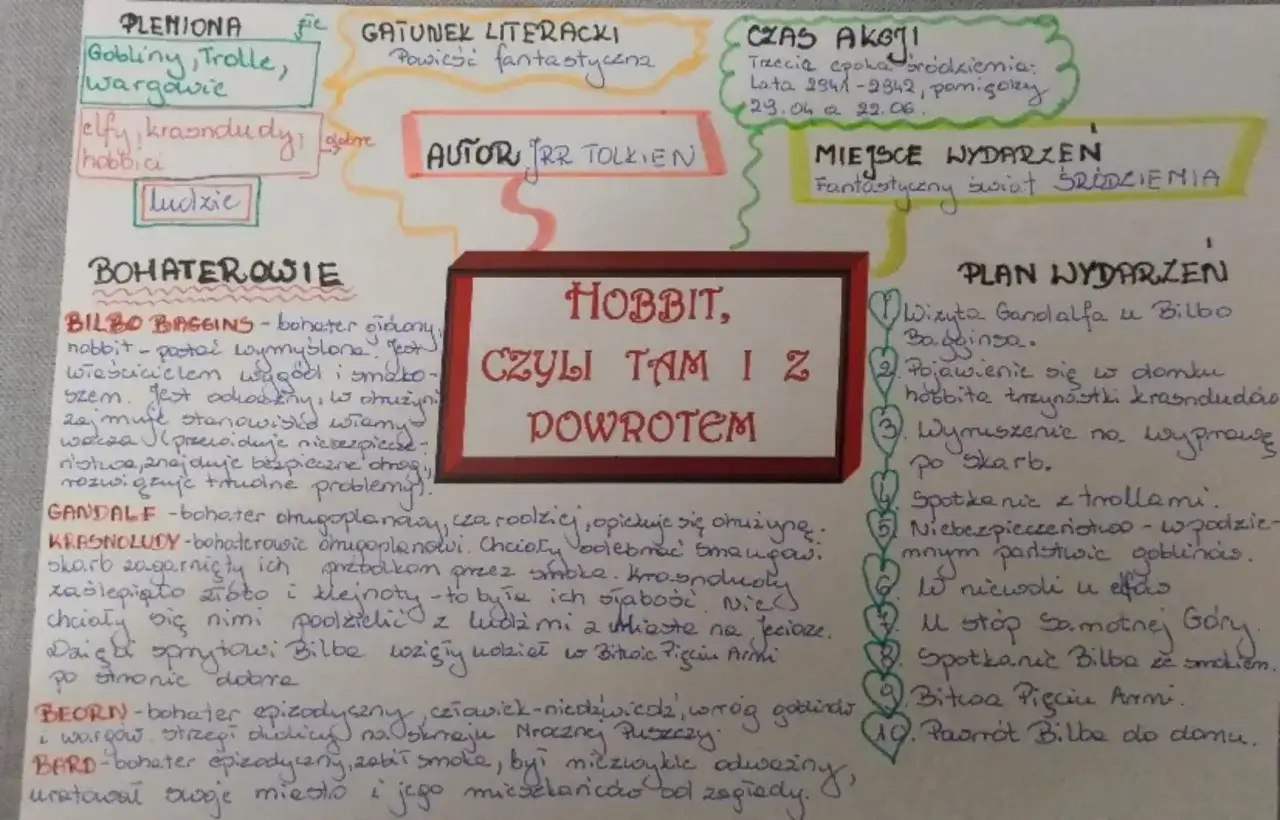 PLEMIONA
złe
Gobliny, Trolle,
wargowie
elfy, krasnoludy,
hobbici
dobre
ludzie
GATUNEK LITERACKI
Powieść fantastyczna
CZAS AKCJI
Trzecia epoka śródziemia:
Lata 2941-2942, pomiędzy
29.04 a 22.06.
AUTOR JRR TOLKIEN
MIEJSCE WYDARZEŃ
Fantastyczny świat ŚRÓDZIEMIA
HOBBIT,
CZYLI TAM I Z
POWROTEM
BOHATEROWIE
BILBO BAGGINS - bohater główny,
hobbit - postać wymyślona. Jest
właścicielem wygód i smako-
szem. Jest odważny, w drużynie
zajmuje stanowisko włamy-
wacza (przewiduje niebezpiecze-
ństwa, znajduje bezpieczne drogi,
rozwiązuje trudne problemy).
GANDALF - bohater drugoplanowy, czarodziej, opiekuje się drużyną.
KRASNOLUDY - bohaterowie drugoplanowi. Chciały odebrać Smaugowi
skarb zagarnięty ich przodkom przez smoka. Krasnoludy
zaślepiało złoto i klejnoty - to była ich słabość. Nie
chciały się nimi podzielić z ludźmi z Miasta na Jeziorze.
Dzięki sprytowi Bilba wzięły udział w Bitwie Pięciu Armi
po stronie dobra
BEORN - bohater epizodyczny, człowiek-niedźwiedź, wróg goblinów
i wargów. strzegł okolicy na skraju Mrocznej Puszczy.
BARD - bohater epizodyczny, zabił smoka, był niezwykle odważny,
uratował swoje miasto i jego mieszkańców od zagłady.
PLAN WYDARZEŃ
1. Wizyta Gandalfa u Bilbo
Bagginsa.
2. Pojawienie się w domku
hobbita trzynastki krasnoludów
3. Wyruszenie na wyprawę
po skarb.
4. Spotkanie z trollami.
5. Niebezpieczeństwo - w podzie-
mnym państwie goblinów.
6. W niewoli u elfów
7. U stóp Samotnej Góry.
8. Spotkanie Bilba ze smokiem.
9. Bitwa Pięciu Armi.
10. Powrót Bilba do domu.